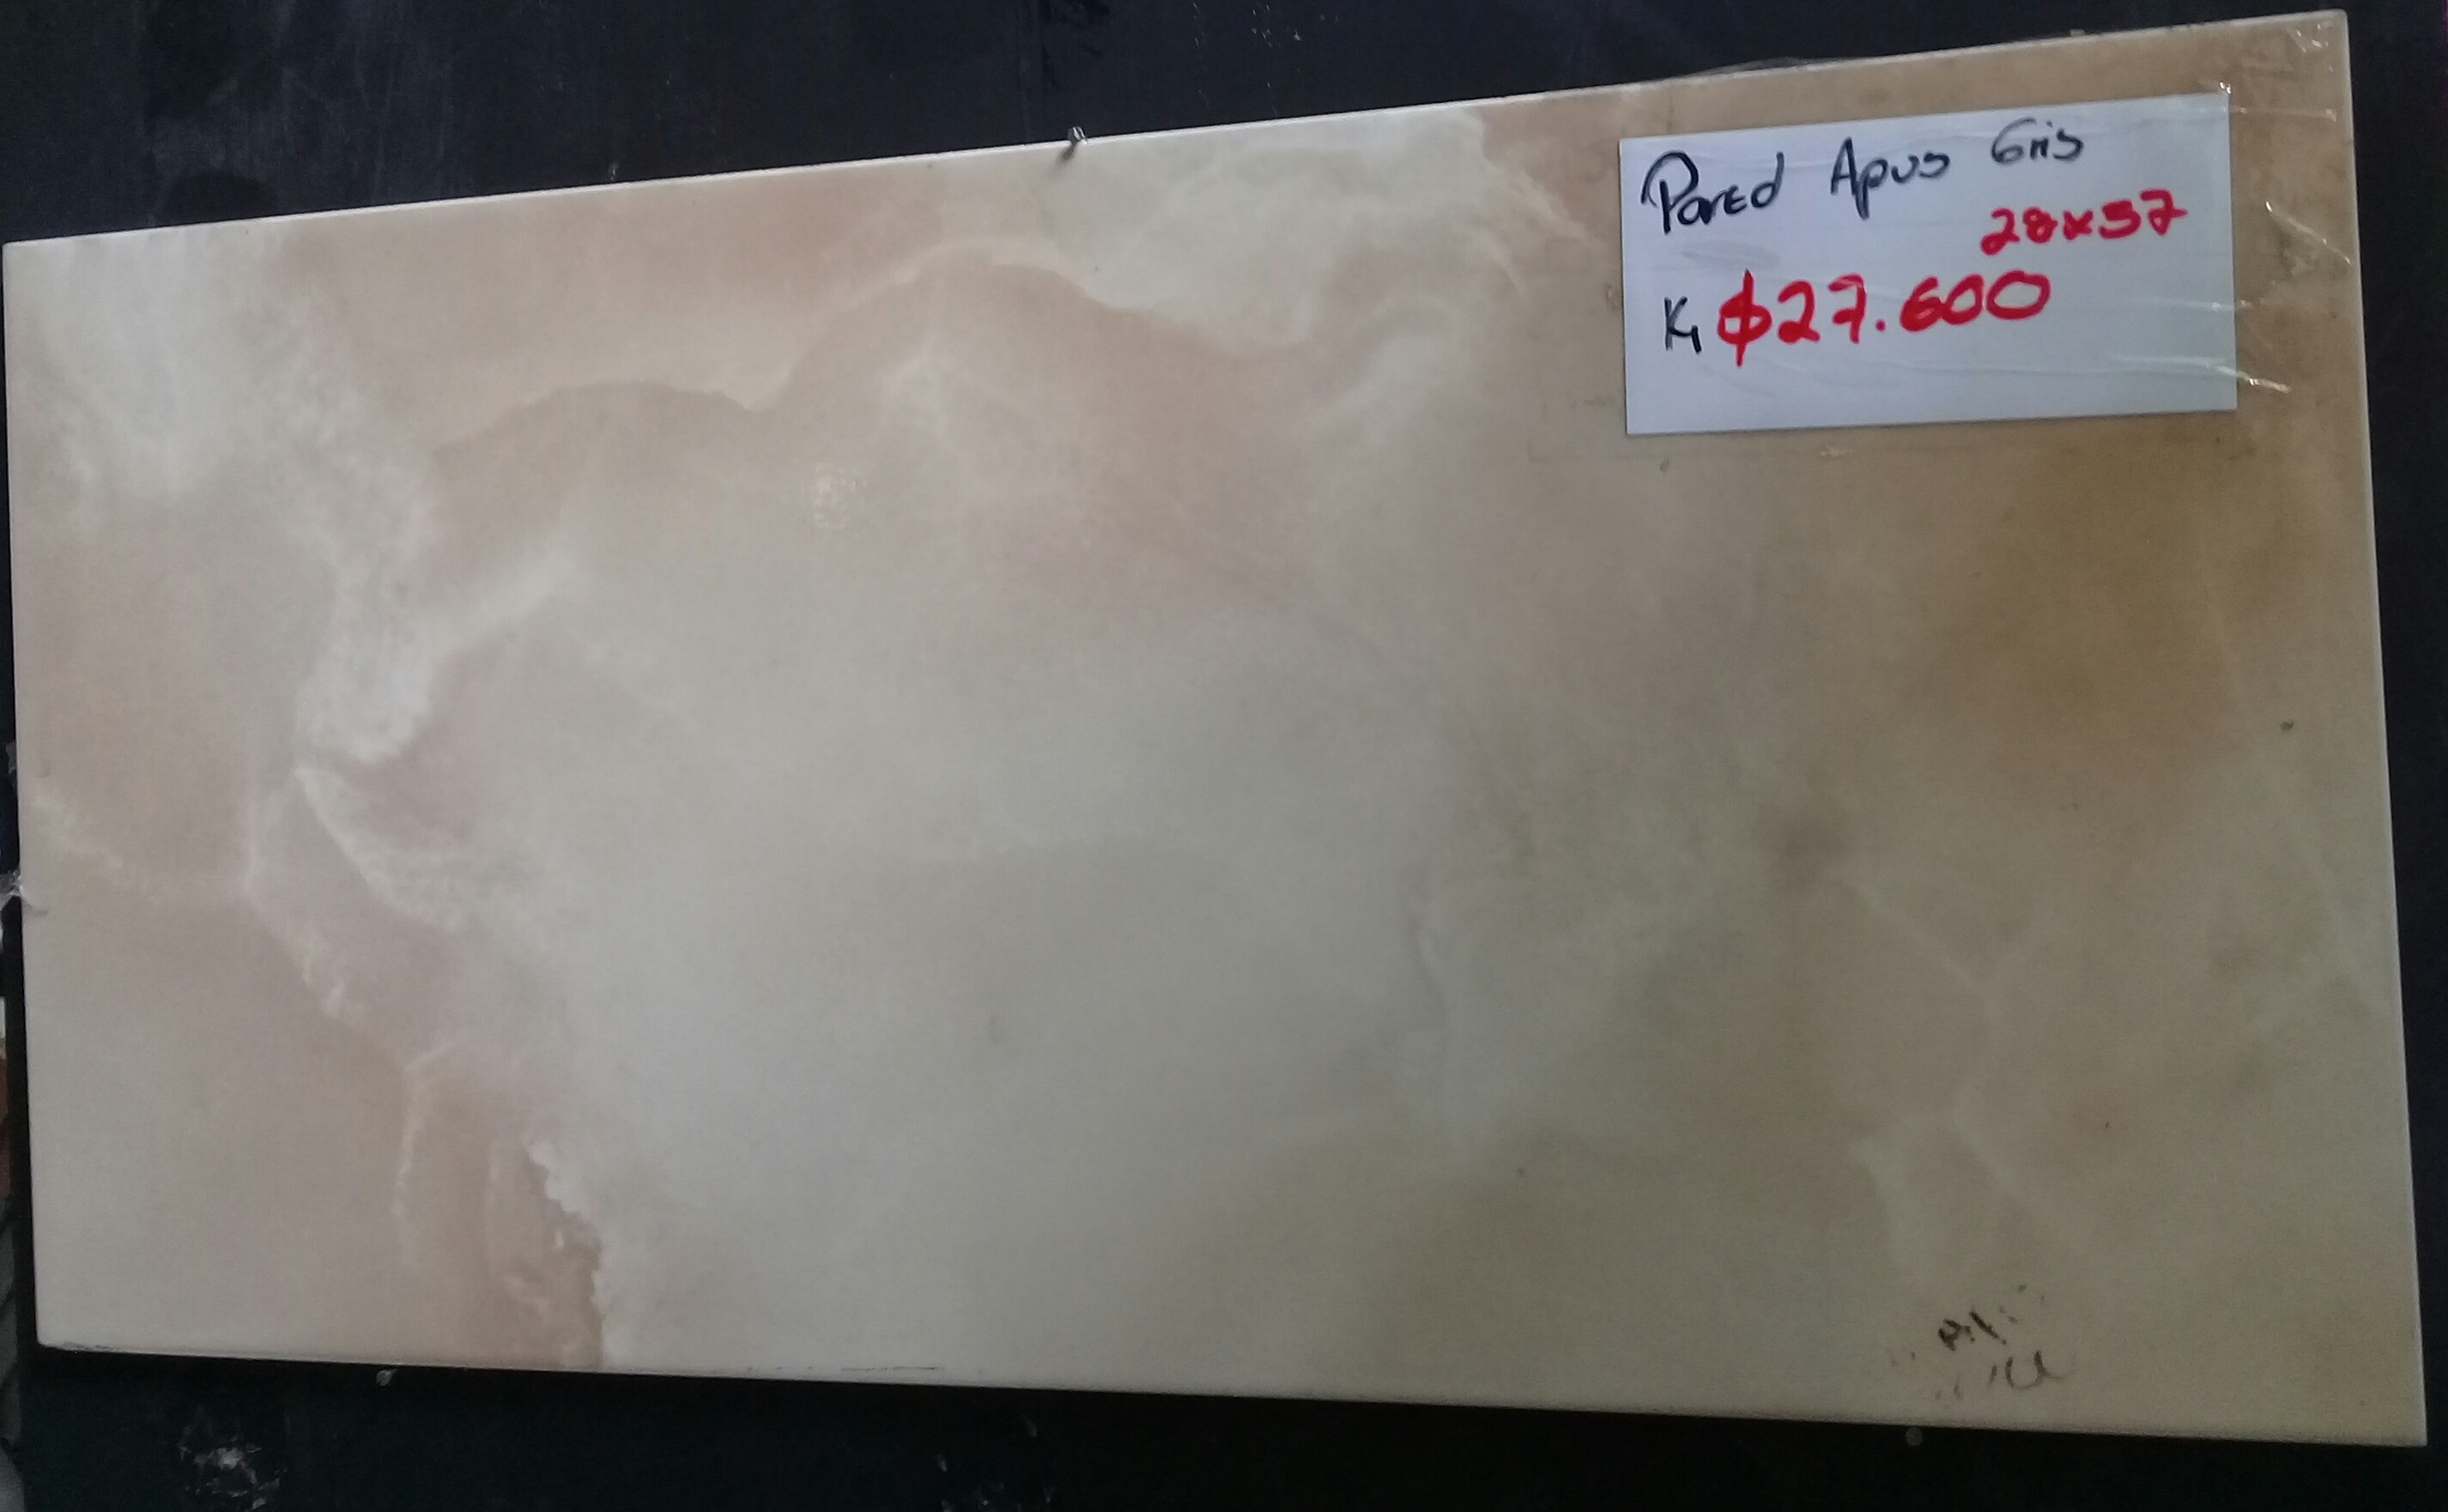 Pared Apus Gris
28x57
K1 $27.600